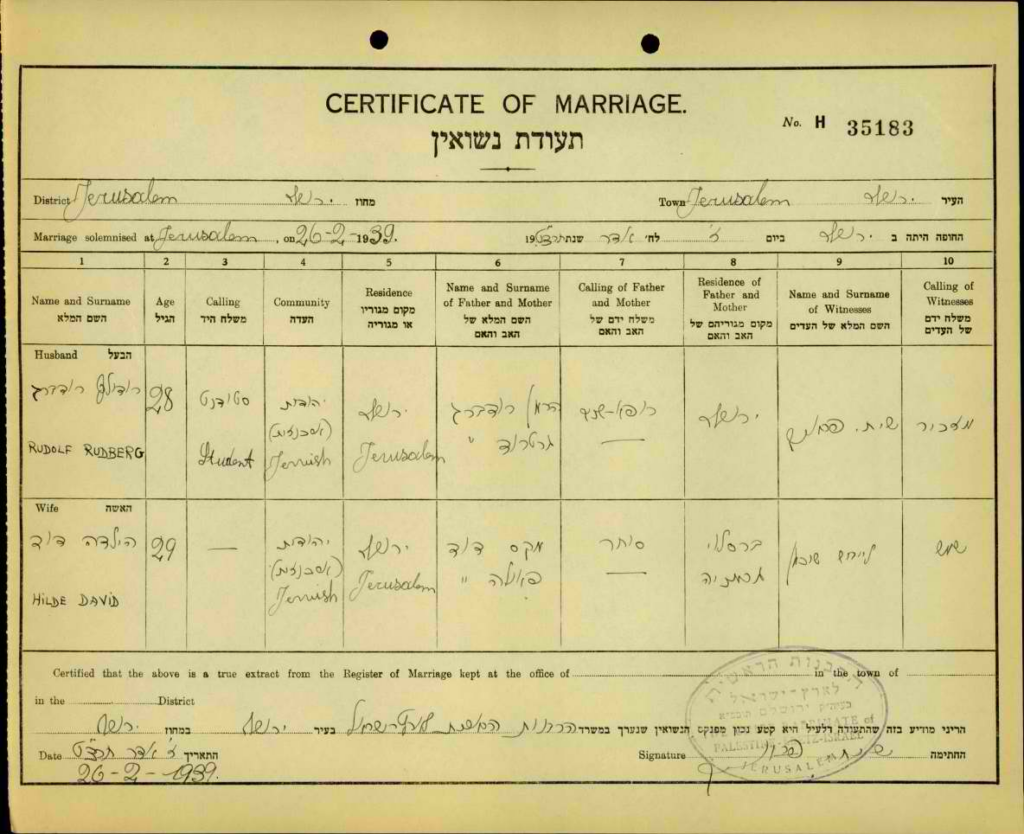 CERTIFICATE OF MARRIAGE.
תעודת נשואין
No. H 35183
District Jerusalem ירושלים מחוז Town Jerusalem ירושלים העיר
Marriage solemnised at Jerusalem, on 26-2-1939. החופה היתה ב ירושלים ביום ז' לח' אדר שנת תרצ"ט 19
1 2 3 4 5 6 7 8 9 10
Name and Surname
השם המלא
Age
הגיל
Calling
משלח היד
Community
העדה
Residence
מקום מגוריו
או מגוריה
Name and Surname
of Father and Mother
השם המלא של
האב והאם
Calling of Father
and Mother
משלח ידם של
האב והאם
Residence of
Father and
Mother
מקום מגוריהם של
האב והאם
Name and Surname
of Witnesses
השם המלא של העדים
Calling of
Witnesses
משלח ידם
של העדים
Husband הבעל
רודולף רודברג
RUDOLF RUDBERG
28
סטודנט
Student
יהודית
(אשכנזית)
Jewish
ירושלים
Jerusalem
הרמן רודברג
גרטרוד "
רופא-שנים
—
ירושלים
מזכיר
Wife האשה
הילדה דוד
HILDE DAVID
29
—
יהודית
(אשכנזית)
Jewish
ירושלים
Jerusalem
מקס דוד
פאולה "
סוחר
—
ברסלוי
גרמניה
שמש
Certified that the above is a true extract from the Register of Marriage kept at the office of in the town of
in the District
הריני מודיע בזה שהתעודה דלעיל היא קטע נכון מפנקס הנשואין שנערך במשרד הרבנות הראשית לארץ-ישראל בעיר ירושלים במחוז ירושלים
Date ז' אדר תרצ"ט התאריך
26-2-1939.
Signature החתימה
הרבנות הראשית
לארץ-ישראל
RABBINATE of
PALESTINE
JERUSALEM